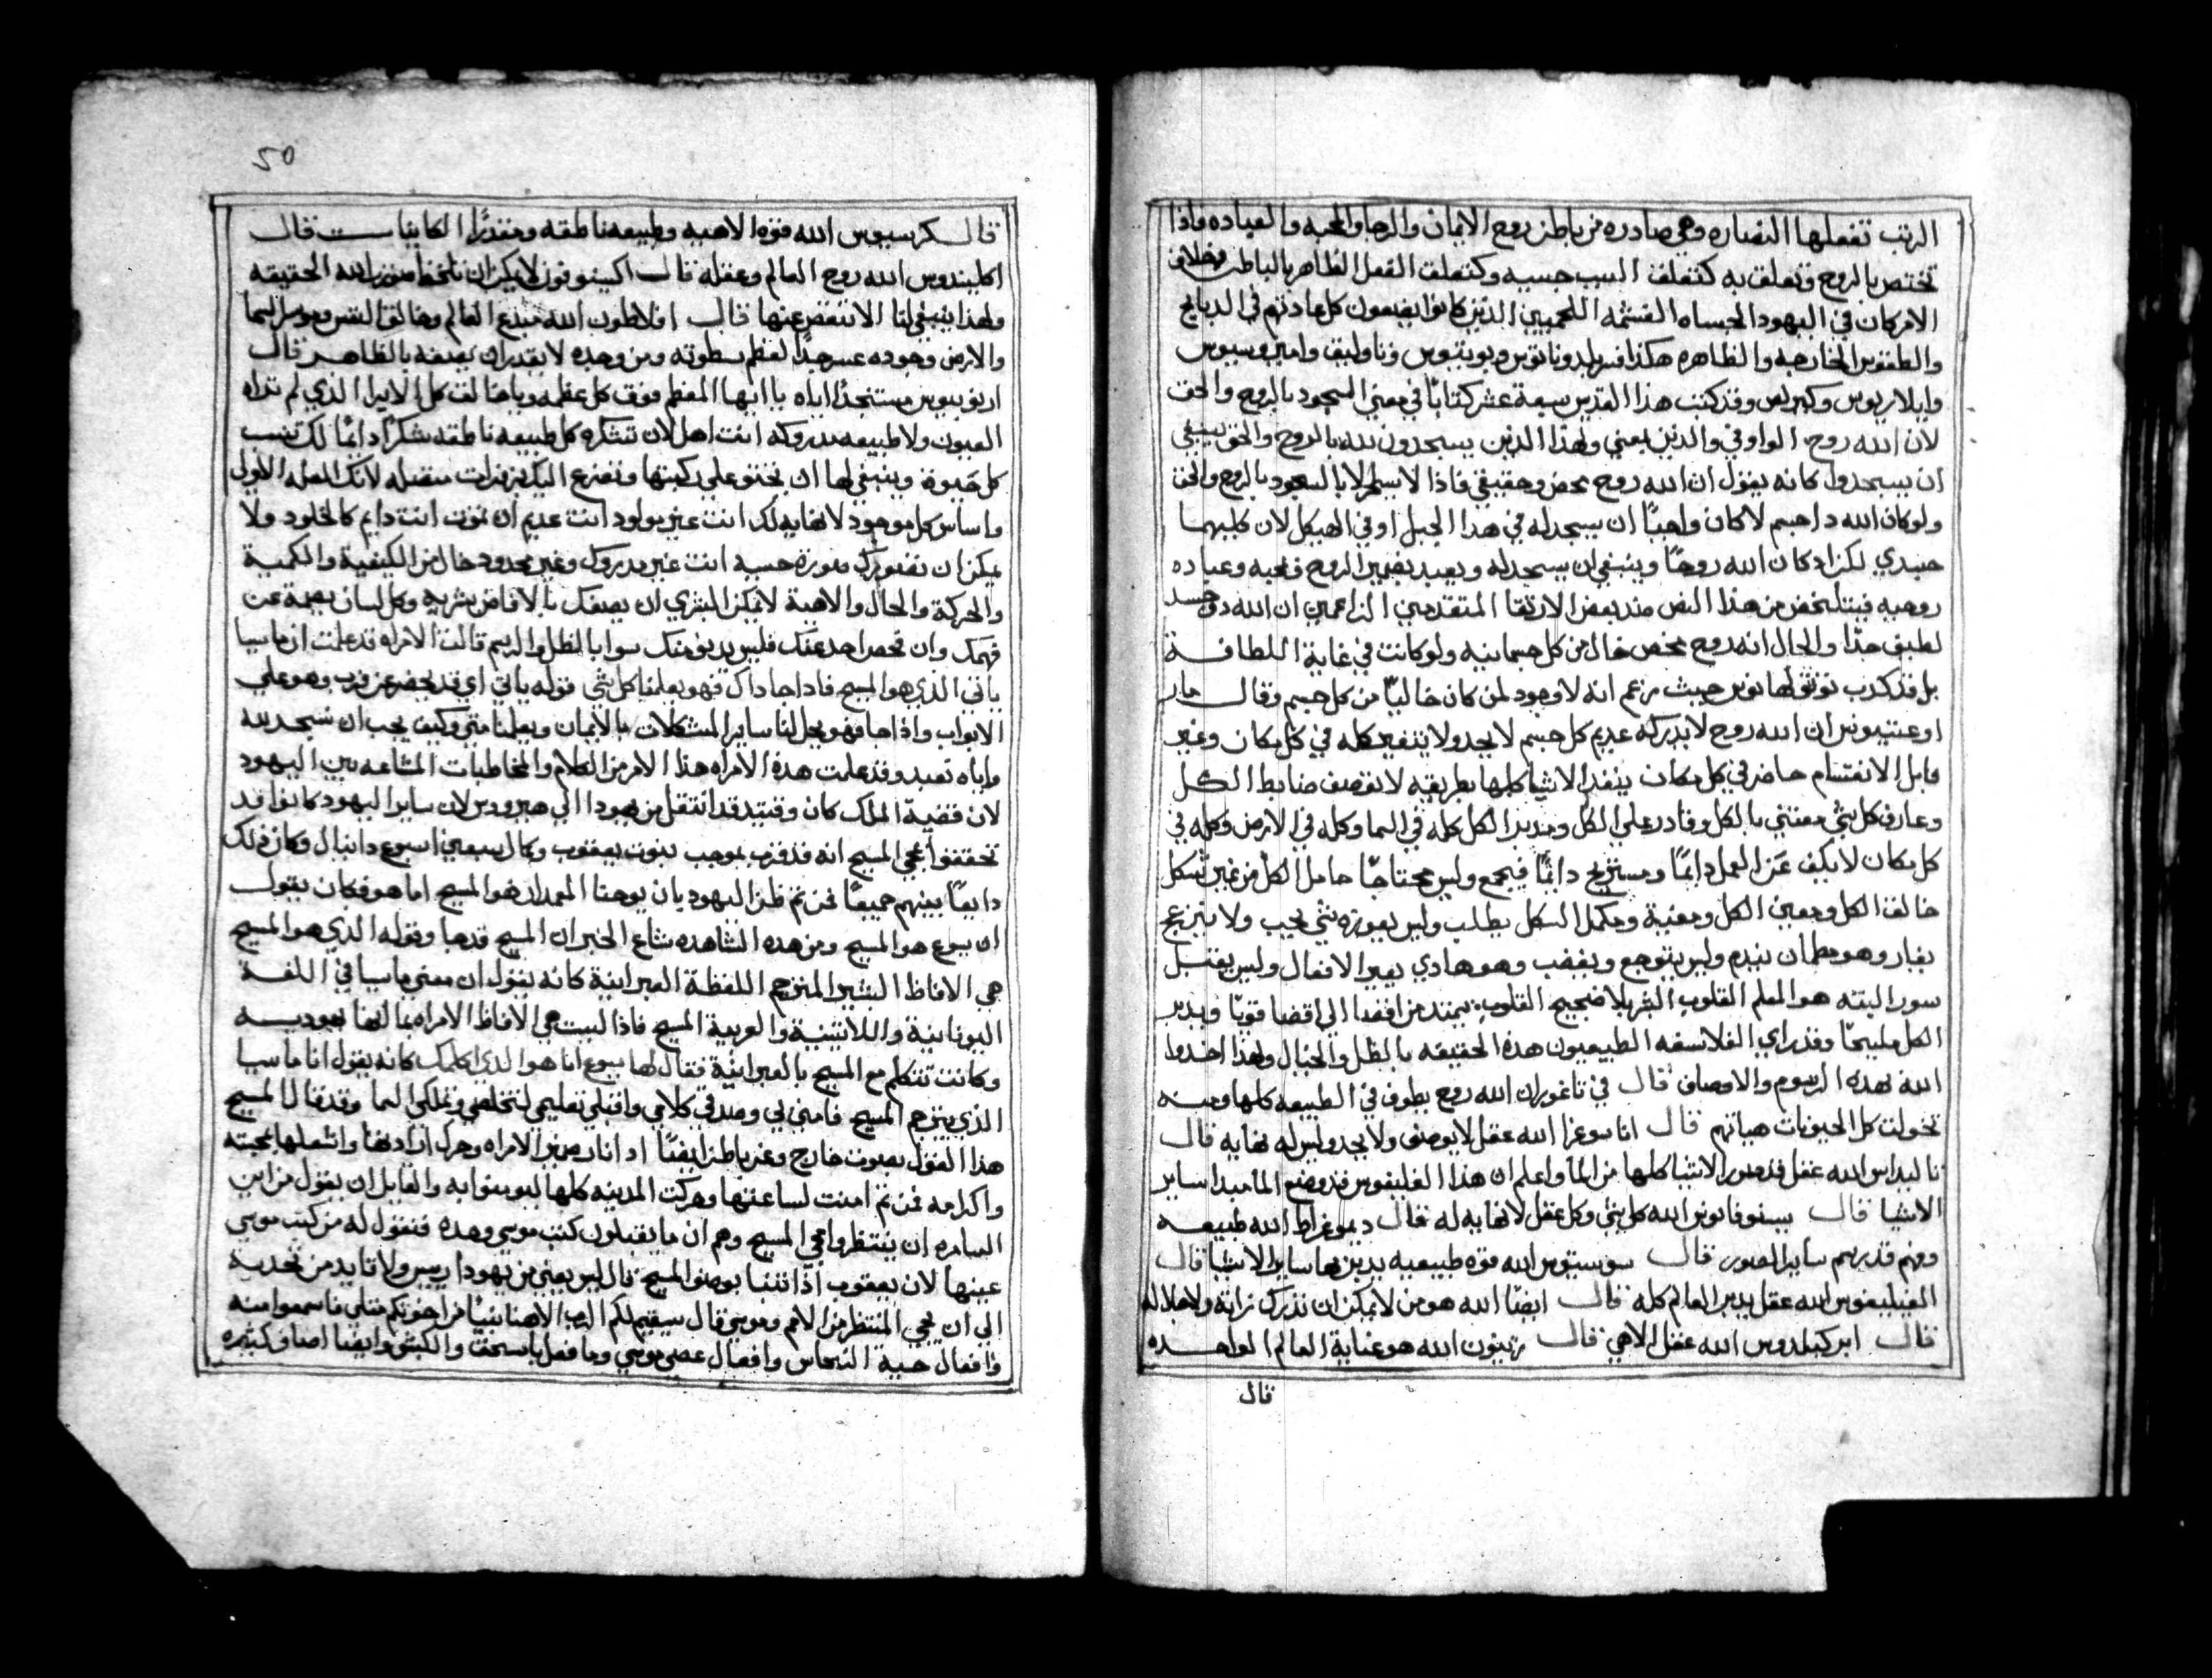 الرتب تفعلها النصاره وهي صادره من باطن روح الايمان والرجا والمحبه والعباده واذا
تختص بالروح وتعلق به كتعلق السبب حسبه وكتعلق الفعل الظاهر بالباطن فخلاف
الامر كان في اليهود الجساه القشمه اللحميين الذين كانوا يضعون كل عبادتهم في الدبايح
والطقوس الخارجيه والظاهره هكذا فسر ابلدوناتوس وبوبتيوس وناوليق وامبروسيوس
وايلاريوس وكيرلص وقد كتب هذا القديس سبعة عشر كتابًا في معني السجود بالروح والحق
لان الله روح الواو في والذين يعني ولهذا الذين يسجدون لله بالروح والحق ينبغي
ان يسجدوا كانه يقول ان الله روح محض وحقيقي فاذا لا يسر الا بالسجود بالروح والحق
ولو كان الله ذا جسم لا كان واجبًا ان يسجد له في هذا الجبل او في الهيكل لان كليهما
جسدي لكن اد كان الله روحًا وينبغي ان يسجد له ويعبد بضمير الروح فحبه وعباده
روحيه فيتلخض من هذا النص ضد بعض الارتقا المتقدمين الزاعمين ان الله دو جسد
لطيف جدًا والحال انه روح محض خال من كل جسمانيه ولو كانت في غاية اللطافة
بل قد كدب توتولهانوس حيث زعم انه لا وجود لمن كان خاليًا من كل جسم وقال مار
اوغنتيونس ان الله روح لا يدركه عديم كل جسم لا يحد ولا يتغير كله في كل مكان وغير
قابل الانقسام حاضر في كل مكان ينفد الاشيا كلها بطريقه لا توصف ضابط الكل
وعارف كل شي معتني بالكل وقادر علي الكل ومدبر الكل كله في السما وكله في الارض وكله في
كل مكان لا يكف عن العمل دايمًا ومستريح دايمًا فيجمع وليس محتاجًا حامل الكل من غير شكل
خالق الكل ومعين الكل ومعنية ومكمل الكل يطلب وليس يعوزه شي يحب ولا ينزعج
يغار وهو مطمان يندم وليس يتوجع ويغضب وهو هادي يغير الافعال وليس يقتبل
سورا البته هو المعلم القلوب الشر بلا ضجيج القلوب يمتد من اقصا الي اقصا قويًا ويدبر
الكل مليحًا وقد راي الفلاسفه الطبيعيون هذه الحقيقه بالظل والخيال ولهذا اخدوا
الله بهذه الرسوم والاوصاف قال في تاغوران الله روح يطوف في الطبيعه كلها ومنه
تخولت كل الحيوانات حياتهم قال اناسوغرا الله عقل لا يوصف ولا يحد وليس له نهايه قال
تاليداس الله عقل قد صور الاشيا كلها من الما واعلم ان هذا الفليفوس قد وضع الما مبدا ساير
الاشيا قال بيسنوفانوس الله كل شي وكل عقل لا نهايه له قال ديموغراط الله طبيعه
ومنهم قد رسم ساير الصور قال سوسيتوس الله قوه طبيعيه يدبر بها ساير الاشيا قال
الفيليفوس الله عقل يدبر العالم كله قال ايضًا الله هو من لا يمكن ان تدرك ذاته ولا جلاله
قال ابركيلدوس الله عقل الاهي قال زينون الله هو عناية العالم الواحده
قال
50
قال كرسيوس الله قوه الاهيه وطبيعه ناطقه ومقدرًا الكاينات قال
اكليندوس الله روح العالم وعقله قال اكسينوفون لا يمكن ان نلحظ صورة الله الحقيقه
ولهذا ينبغي لنا الا نتفحص عنها قال افلاطون الله مبدع العالم وخالق النفس وموسس السما
والارض وجوده عسر جدًا لعظم سطوته ومن وجده لا يقدر ان يصفه بالظاهر قال
ارنوبيوس مستنجدًا اياه يا ايها المعظم فوق كل عظمه ويا خالق كل الابرا الذي لم تراه
العيون ولا طبيعه مدروكه انت اهل لان تشكره كل طبيعه ناطقه شكرًا دايمًا لك تنسب
كل حيوة وينبغي لها ان تحثو علي ركبتها وتضرع اليك بزفرات متصله لانك العله الاولي
واساس كل موجود لا نهايه لك انت غير مولود انت عديم ان تموت انت دايم كالخلود ولا
يمكن ان تصورك صورة حسيه انت غير مدروك وغير محدود خال من الكيفية والكمية
والحركة والحال والاهية لا يمكن البشري ان يصفك بالافاض بشريه وكل لسان يصمت عن
فهمك وان فحص احد عنك فليس يدنو منك سوا بالظل والرسم قالت الامراه قد علمت ان ماسيا
ياتي الذي هو المسيح فاذا جا ذاك فهو يعلمنا كل شي قوله ياتي اي قد يحضر عن قرب وهو علي
الابواب واذا جا فهو يحل لنا ساير المشكلات بالايمان ويعلمنا متي وكيف يجب ان نسجد لله
واياه نعبد وقد علمت هذه الامراه هذا الامر من الكلام والمخاطبات المشاعه بين اليهود
لان قضية الملك كان وقتيد قد انتقل من يهودا الي هيرودس لان ساير اليهود كانوا قد
تحققوا مجي المسيح انه قد قرب بموجب نبوت يعقوب وكمال سبعين اسبوع دانيال وكان ذلك
دايعًا بينهم جميعًا فمن تم ظن اليهود بان يوحنا المعمدان هو المسيح اما هو فكان يقول
ان يسوع هو المسيح ومن هده الشاهده شاع الخبر ان المسيح قد جا وقوله الدي هو المسيح
هي الافاظ البشير المترجم اللفظة العبرانية كانه يقول ان معني ماسيا في اللغة
اليونانية واللاتينية والعربية المسيح فاذا ليست هي الافاظ الامراه بما انها يهوديه
وكانت تتكلم مع المسيح بالعبرانية فقال لها يسوع انا هو الذي اكلمك كانه يقول انا ماسيا
الذي يترجم المسيح فامني بي وصدقي كلامي واقبلي تعليمي لتتخلصي وتملكي السما وقد قال المسيح
هذا القول بصوت خارج وغير باطن ايضًا اد انار ضمير الامراه وحرك ارادتها واشعلها بمحبته
واكرامه فمن تم امنت لساعتها وحركت المدينه كلها ليومنوا به والقايل ان يقول من اين
السامره ان ينتظروا مجي المسيح وهم ان ما يقبلون كتب موسي وحده فنقول له من كتب موسي
عينها لان يعقوب اذ اتنبا بوصف المسيح قال ليس يعني من يهودا رييس ولا قايد من فخديه
الي ان يجي المنتظر من الامم وموسي قال سيقيم لكم الرب الاهنا نبيًا من اخوتكم متلي فاسمعوا منه
وافعال حية النحاس وافعال عصي موسي وما فعل باسحق والكبش وايضا اصاو كثيره